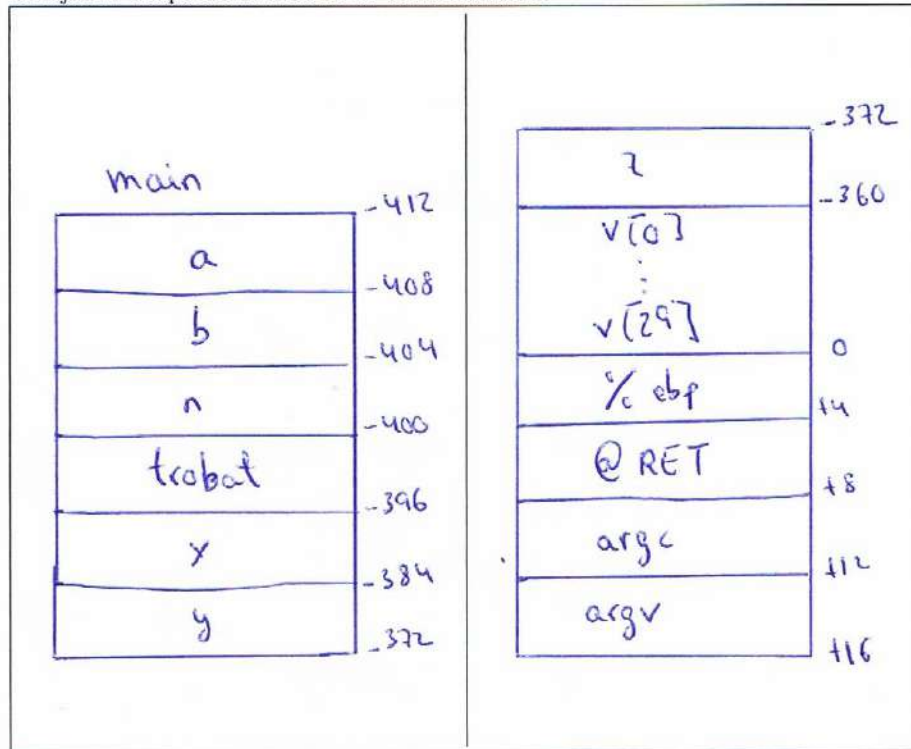 main
-412
a
-408
b
-404
n
-400
trobat
-396
x
-384
y
-372
-372
z
-360
v[0]
⋮
v[29]
0
% ebp
+4
@ RET
+8
argc
+12
argv
+16